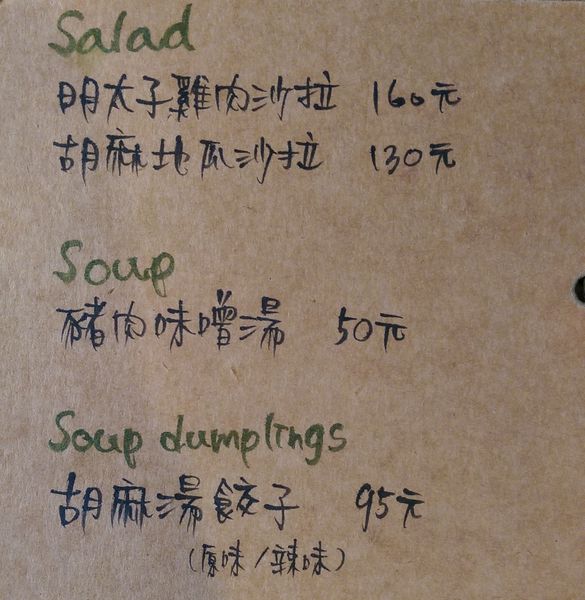 Salad
明太子雞肉沙拉 160元
胡麻地瓜沙拉 130元
Soup
豬肉味噌湯 50元
Soup dumplings
胡麻湯餃子 95元
(原味/辣味)